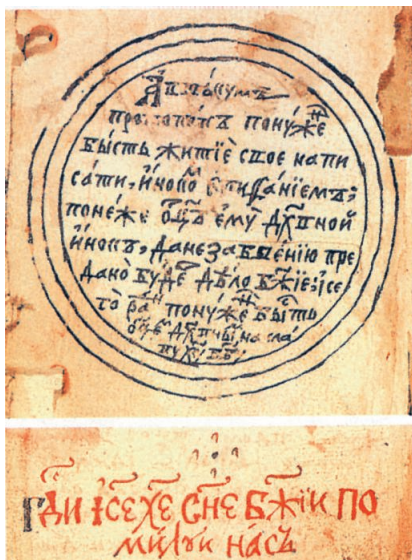 Аввакумъ
протопопъ понуже҆нъ
бысть житиѐ свое напи
сати, и҆нокомъ Епифа́ніемъ;
поне́же ѻ҆ц҃ъ ему̀ дх҃овной
и҆нокъ, да не забвению пре
дано̀ бу́детъ дѣ́ло бж҃іе; і҆ се
го̀ ра́ди понуже҆нъ бы́сть
на сла́
Гд҃и і҆с҃е х҃е сн҃е бж҃іи по
ми́луи на́съ